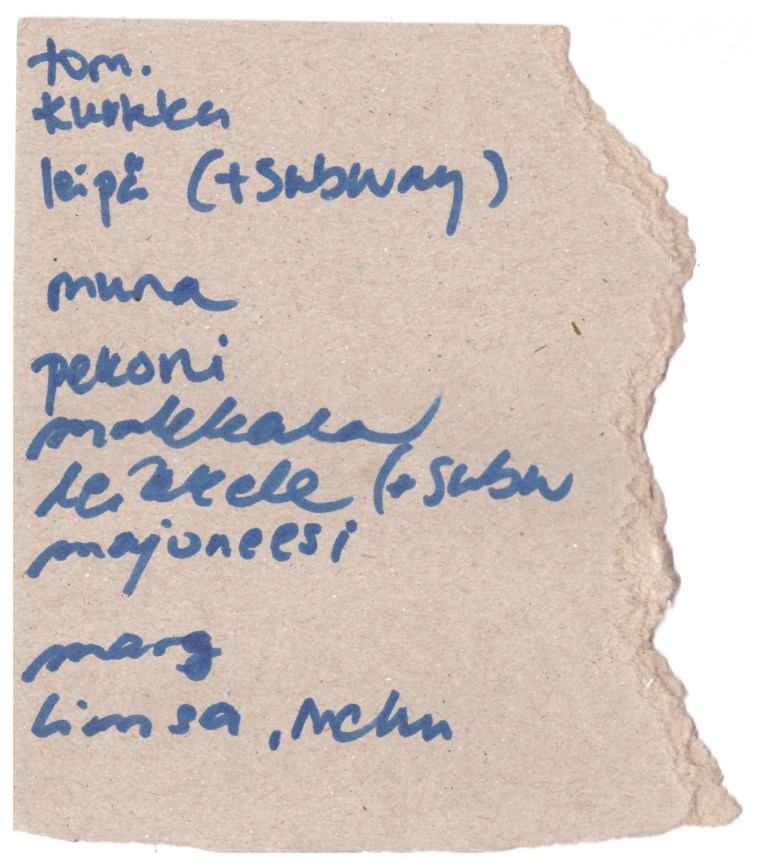 tom.
kurkku
leipä (+subway)
muna
pekoni
makkara
leikkele (+subw
majoneesi
marg
limsa, mehu